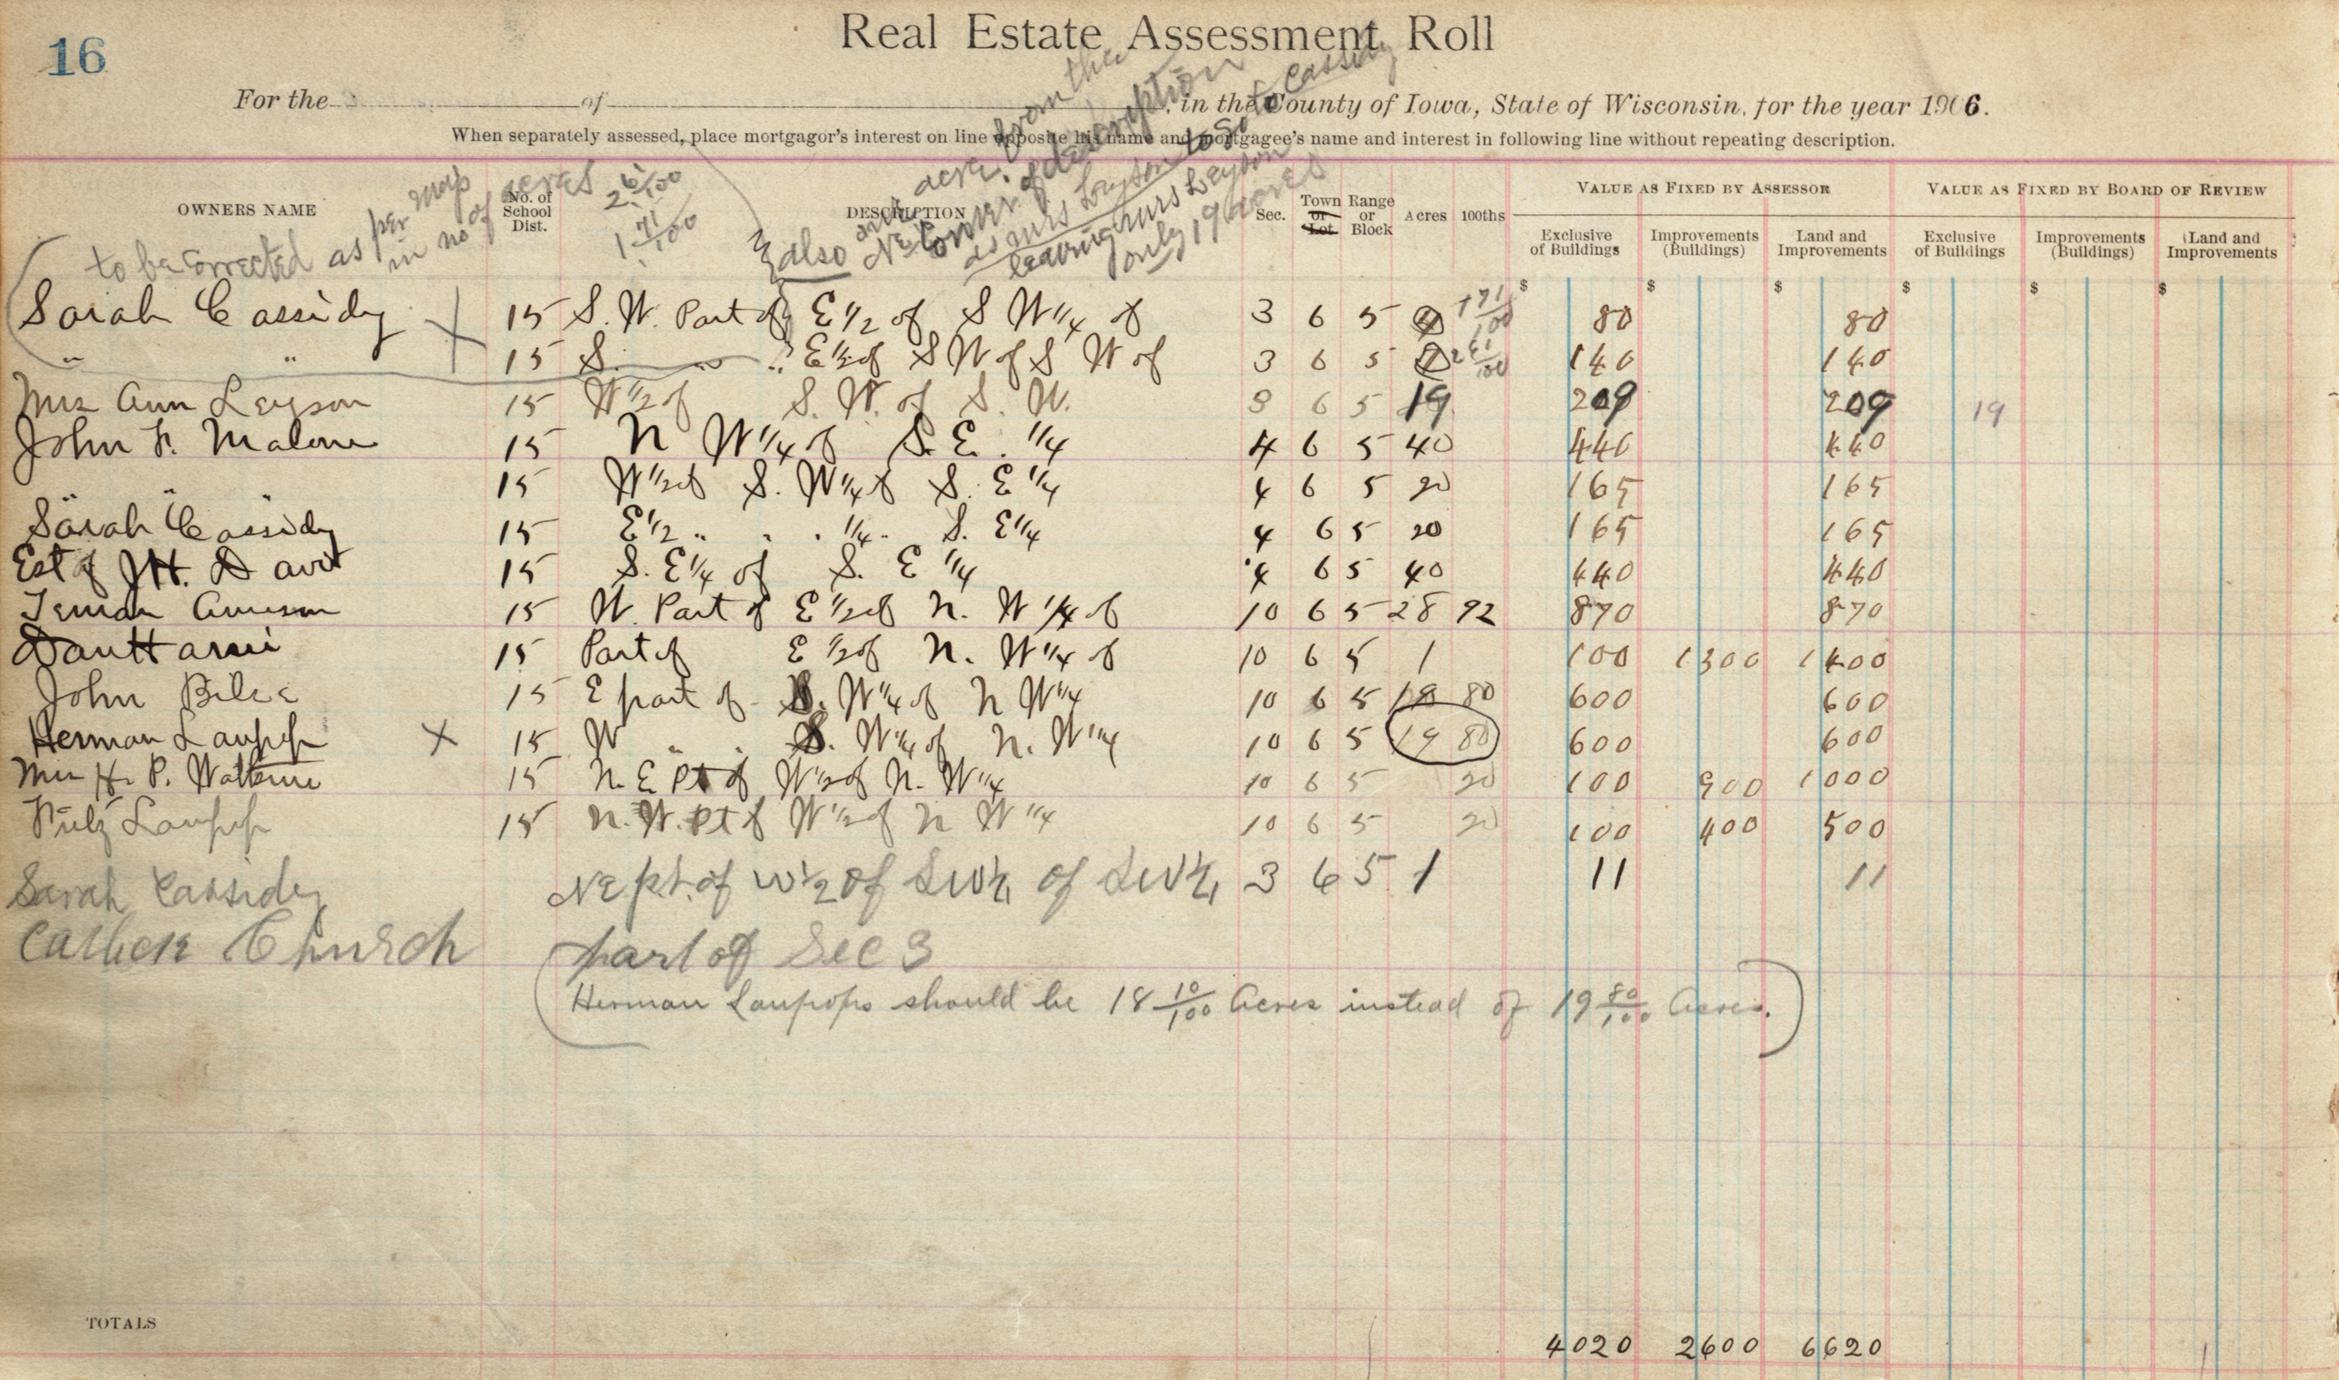 16
Real Estate Assessment Roll
For the of , in the County of Iowa, State of Wisconsin, for the year 1906.
When separately assessed, place mortgagor's interest on line opposite his name and mortgagee's name and interest in following line without repeating description.
OWNERS NAME No. of School Dist. DESCRIPTION Sec. Town or Lot. Range or Block Acres 100ths VALUE AS FIXED BY ASSESSOR VALUE AS FIXED BY BOARD OF REVIEW
Exclusive of Buildings Improvements (Buildings) Land and Improvements Exclusive of Buildings Improvements (Buildings) Land and Improvements
$ $ $ $ $ $
to be corrected as per map in no of acres 2 61/100 1 71/100
also one acre from the NE corner of description as Mrs Leyson to go to Cassidy leaving Mrs Leyson only 19 acres
Sarah Cassidy X 15 S. W. Part of E 1/2 of S W 1/4 of 3 6 5 4 1 71/100 80 80
" " 15 S. " " E 1/2 of S W of S W of 3 6 5 7 2 61/100 140 140
Mrs Ann Leyson 15 W 1/2 of S. W. of S. W. 3 6 5 19 209 209 19
John F. Malone 15 N W 1/4 of S. E. 1/4 4 6 5 40 440 440
" " " 15 W 1/2 of S. W 1/4 of S. E 1/4 4 6 5 20 165 165
Sarah Cassidy 15 E 1/2 " " 1/4 " S. E 1/4 4 6 5 20 165 165
Est of J H. Davis 15 S. E 1/4 of S. E 1/4 4 6 5 40 440 440
15 W. Part of E 1/2 of N. W 1/4 of 10 6 5 28 92 870 870
Dan Harris 15 Part of E 1/2 of N. W 1/4 of 10 6 5 1 100 1300 1400
John 15 E part of S. W 1/4 of N W 1/4 10 6 5 19 80 600 600
Herman Laupop X 15 W " " S. W 1/4 of N. W 1/4 10 6 5 19 80 600 600
Mrs H. P. 15 N. E Pt of W 1/2 of N. W 1/4 10 6 5 20 100 900 1000
Laupop 15 N. W. Pt of W 1/2 of N W 1/4 10 6 5 20 100 400 500
Sarah Cassidy NE pt. of W 1/2 of SW 1/4 of SW 1/4 3 6 5 1 11 11
Catholic Church part of Sec 3
(Herman Laupops should be 18 10/100 Acres instead of 19 80/100 Acres.)
TOTALS 4020 2600 6620